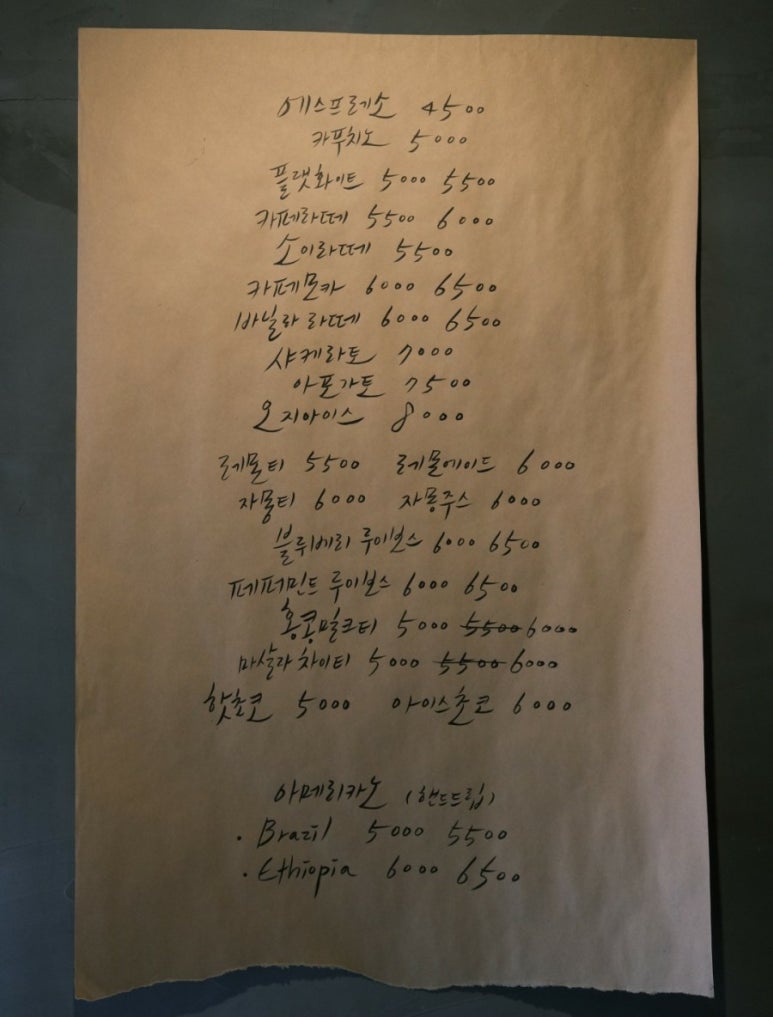 에스프레소 4500
카푸치노 5000
플랫화이트 5000 5500
카페라떼 5500 6000
소이라떼 5500
카페모카 6000 6500
바닐라 라떼 6000 6500
샤케라토 7000
아포가토 7500
오지아이스 8000
레몬티 5500 레몬에이드 6000
자몽티 6000 자몽주스 6000
블루베리 루이보스 6000 6500
페퍼민트 루이보스 6000 6500
홍콩밀크티 5000 5500 6000
마살라 차이티 5000 5500 6000
핫초코 5000 아이스초코 6000
아메리카노 (핸드드립)
· Brazil 5000 5500
· Ethiopia 6000 6500